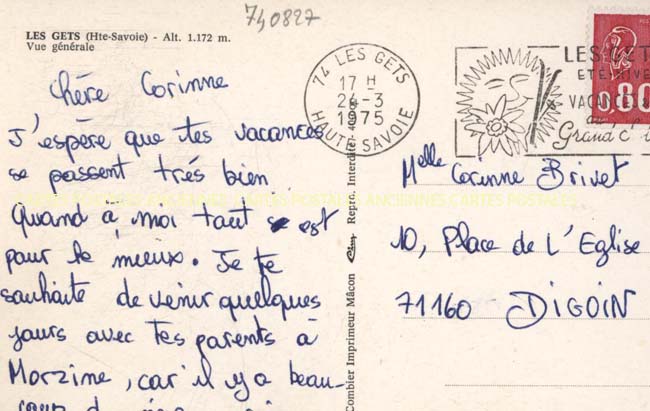 740827
LES GETS (Hte-Savoie) - Alt. 1.172 m.
Vue générale
Chère Corinne
J'espère que tes vacances
se passent très bien
Quand à moi tout se est
pour le mieux. Je te
souhaite de venir quelques
jours avec tes parents à
Morzine, car il y a beau-
Combier Imprimeur Mâcon Cim Repr. Interdite
74 LES GETS
17 H
24-3
1975
HAUTE SAVOIE
LES GETS
VACANCES
Grand
0,80
Melle Corinne Brivet
10, Place de L'Eglise
71160 DIGOIN
CARTES POSTALES ANCIENNES CARTES POSTALES